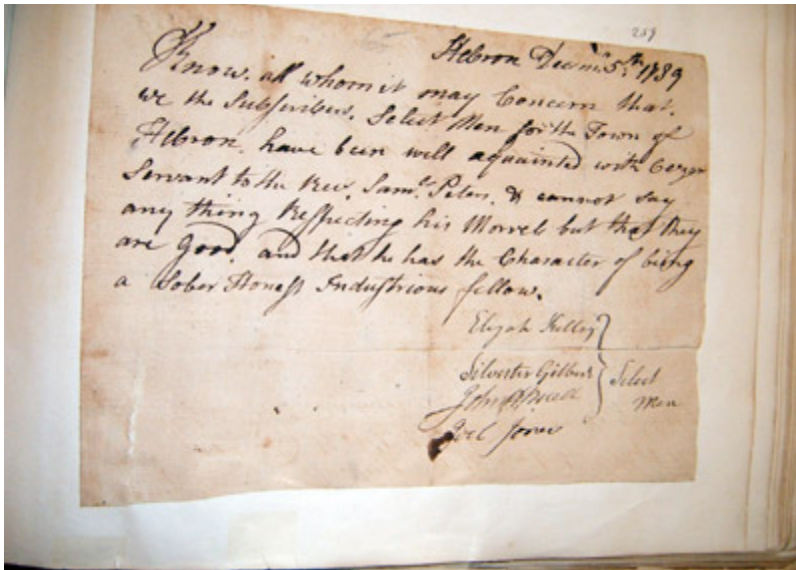 259
Hebron Decmr. 5th 1789
Know. all whom it may Concern that.
we the Subscribers. Select Men for the Town of
Hebron. have been well aquainted with Cezar
Servant to the Rev. Saml. Peters, & cannot say
any thing Respecting his Morrel but that they
are Good, and that he has the Character of being
a Sober Honest Industrious fellow.
Elijah Kelley
Silvester Gilbert
Select
John
Men
Joel Jones